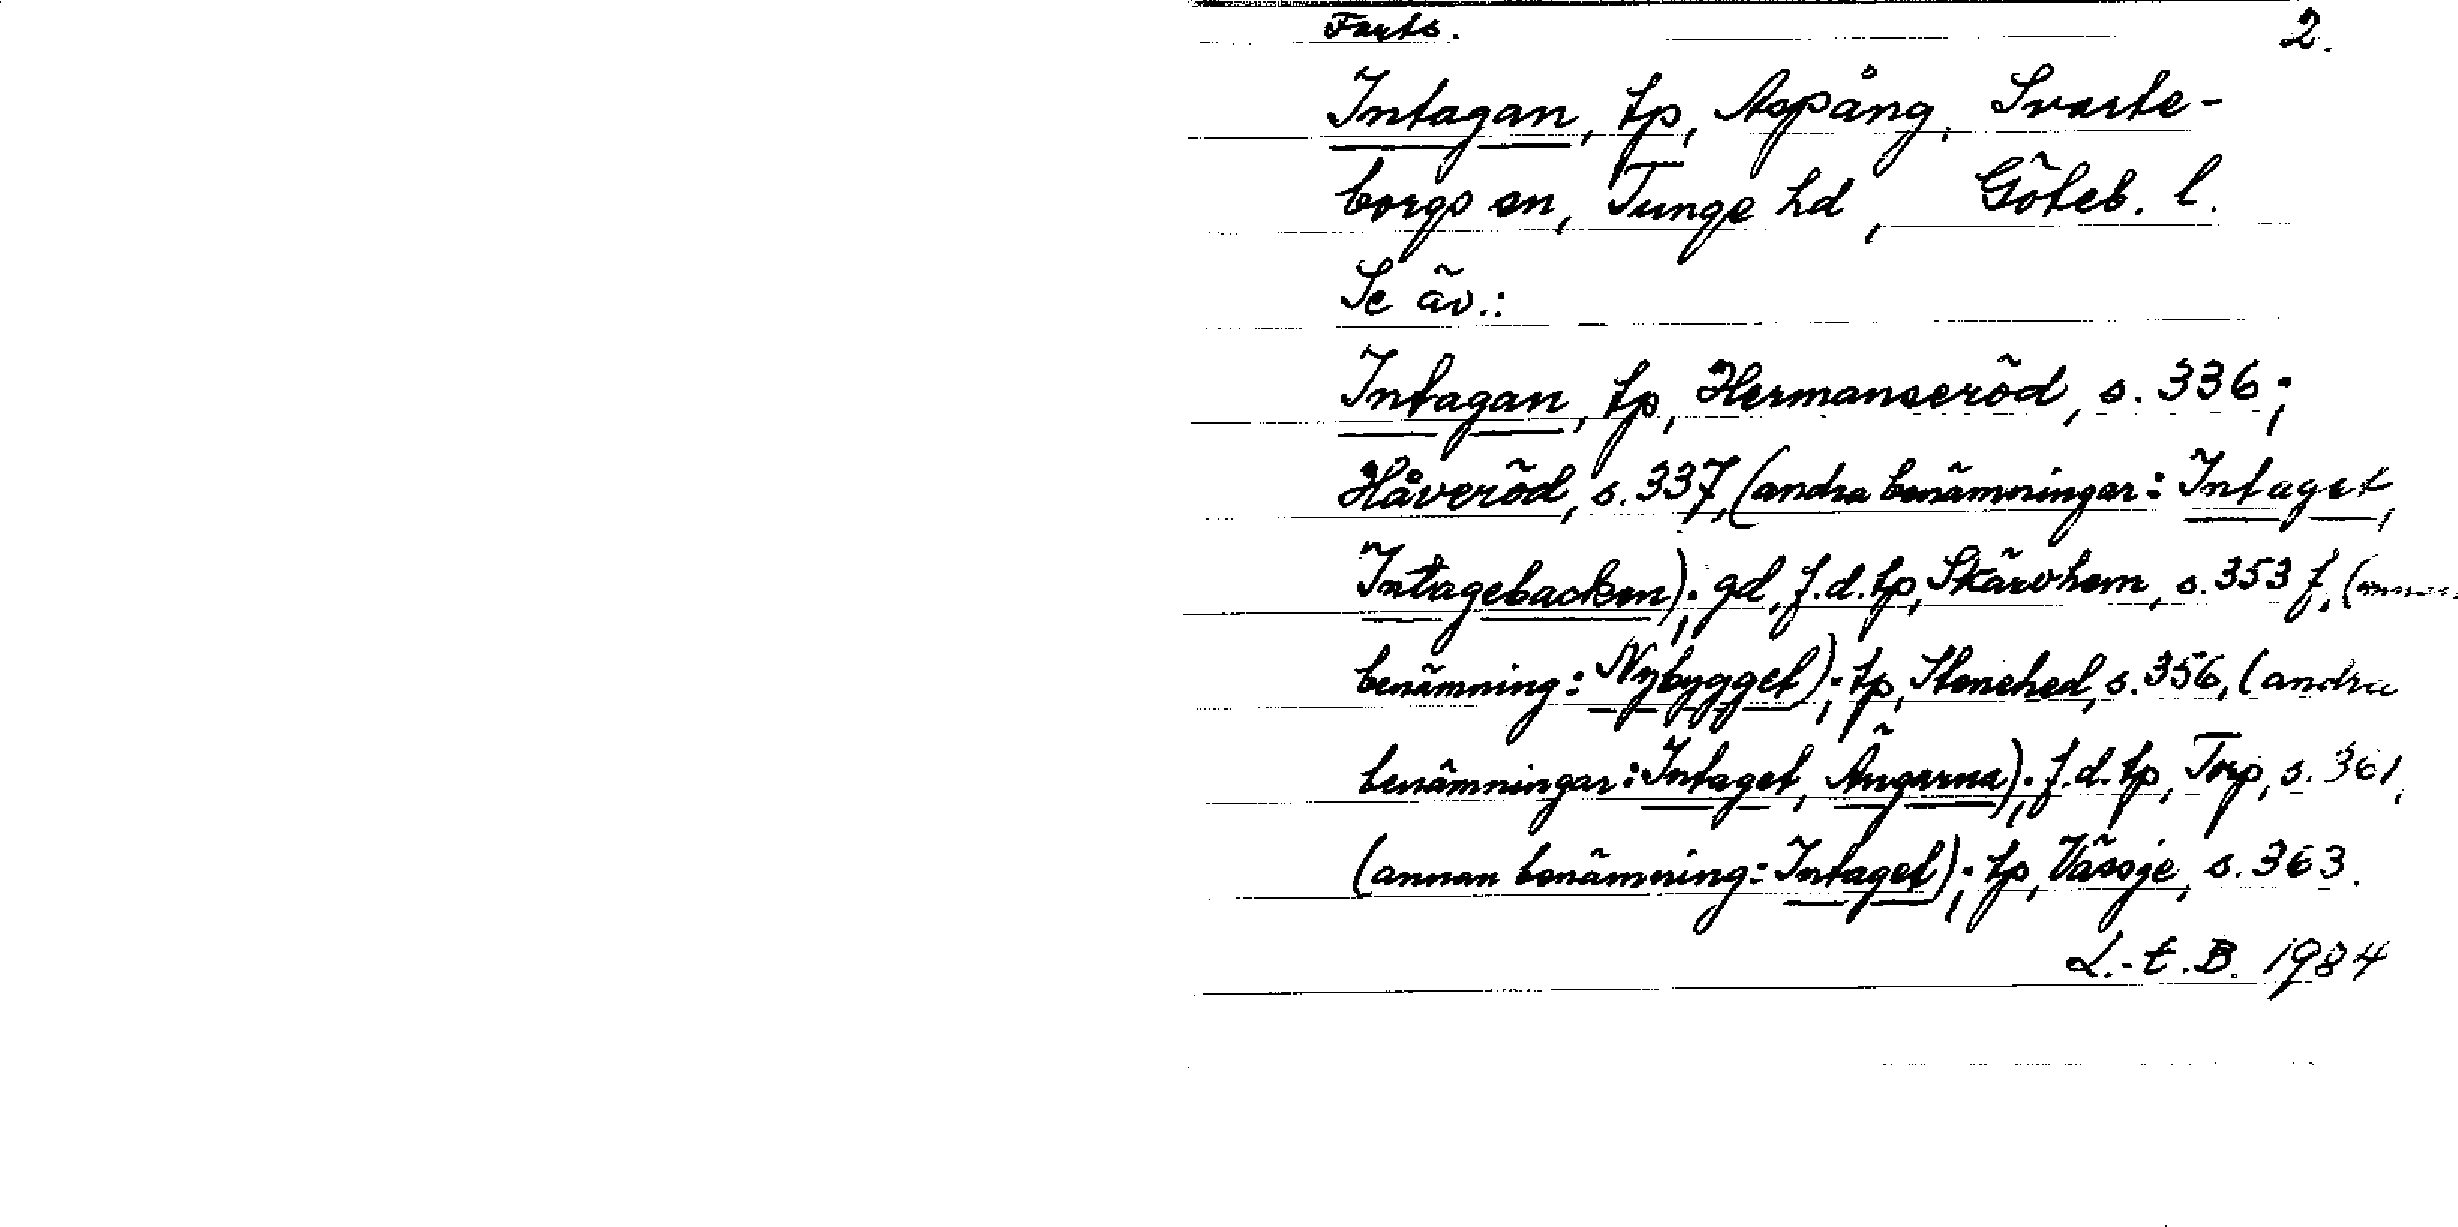 Forts. 2.
Intagan, tp, Aspång, Svarte-
borgs sn, Tunge hd, Göteb. l.
Se äv.:
Intagan, tp, Hermanseröd, s. 336;
Håveröd, s. 337, (andra benämningar: Intaget,
Intagebacken); gd, f.d. tp, Skärvhem, s. 353 f, (annan
benämning: Nybygget); tp, Stenehed, s. 356, (andra
benämningar: Intaget, Ängarna); f.d. tp, Torp, s. 361,
(annan benämning: Intaget); tp, Vässje, s. 363.
L.-t. B. 1984